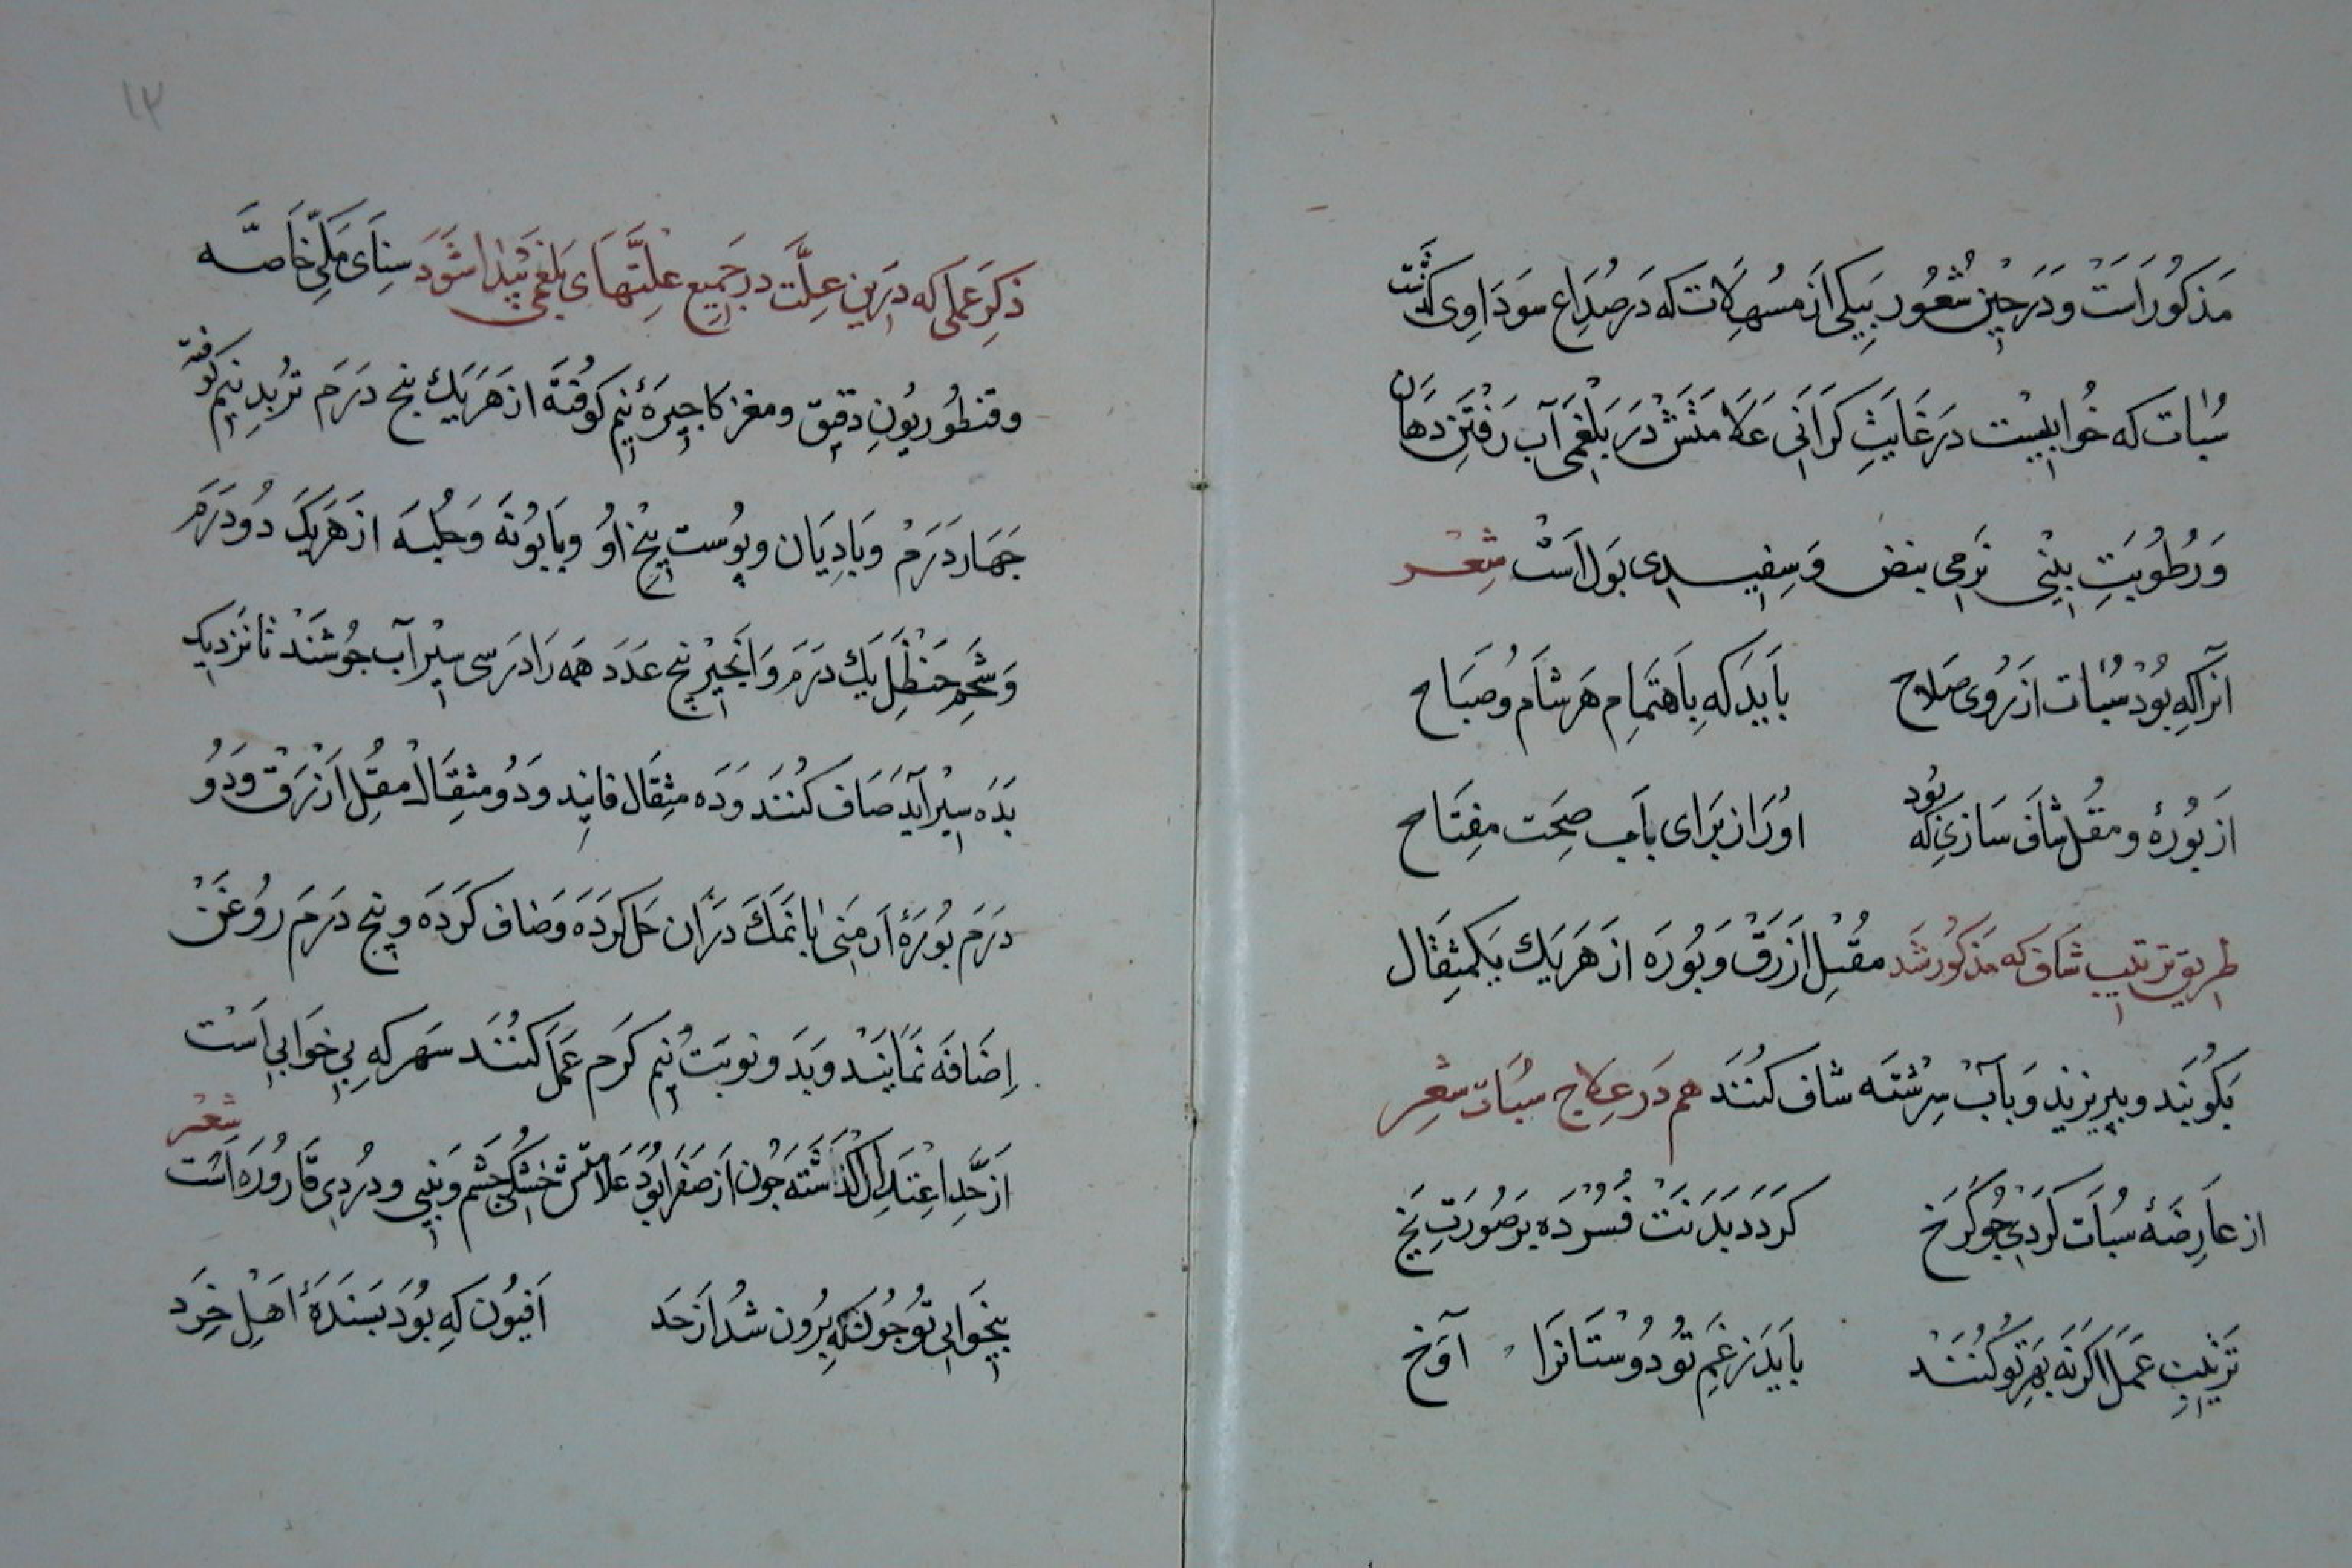 مذکور است و در حین شعور بیکی از مسهلات که در صداع سوداوی گذشت
سبات که خوابیست در غایث کرانی علامتش در بلغمی آب رفتن دهان
و رطوبت بینی نرمی نبض و سفیدی بول است شعر
انرا که بود سبات از روی صلاح باید که باهتمام هر شام و صباح
از بوره و مقل شاف سازی که بود او را از برای باب صحت مفتاح
طریق ترتیب شاف که مذکور شد مقل ازرق و بوره از هر یک یکمثقال
بکوبند و ببیزند و بآب سرشته شاف کنند هم در علاج سبات شعر
از عارضهٔ سبات کردی جو کرخ کردد بدنت فسرده بر صورت یخ
ترتیب عمل اکر نه بهر تو کنند باید ز غم تو دوستانرا آوخ
۱۳
ذکر عملی که درین علت در جمیع علتهای بلغمی پیدا شود سنای مکی خاصه
و قنطوریون دقیق و مغز کاجیرهٔ نیم کوفته از هر یک پنج درم تربد نیم کوفته
جهار درم و بادیان و پوست بیخ او و بابونه و حلبه از هر یک دو درم
و شحم حنظل یک درم و انجیر پنج عدد همه را در سی سیر آب جوشند تا نزدیک
بده سیر آید صاف کنند و ده مثقال فانید و دو مثقال مقل ازرق و دو
درم بورهٔ ارمنی با نمک در آن حل کرده و صاف کرده و پنج درم روغن
اضافه نمایند و بدو نوبت نیم کرم عمل کنند سهر که بی خوابی است
از حد اعتدال کذشته جون از صفرا بود علامتش خشکی جشم و بینی و دردی قاروره است شعر
بیخوابی تو جونکه برون شد از حد افیون که بود بسندهٔ اهل خرد